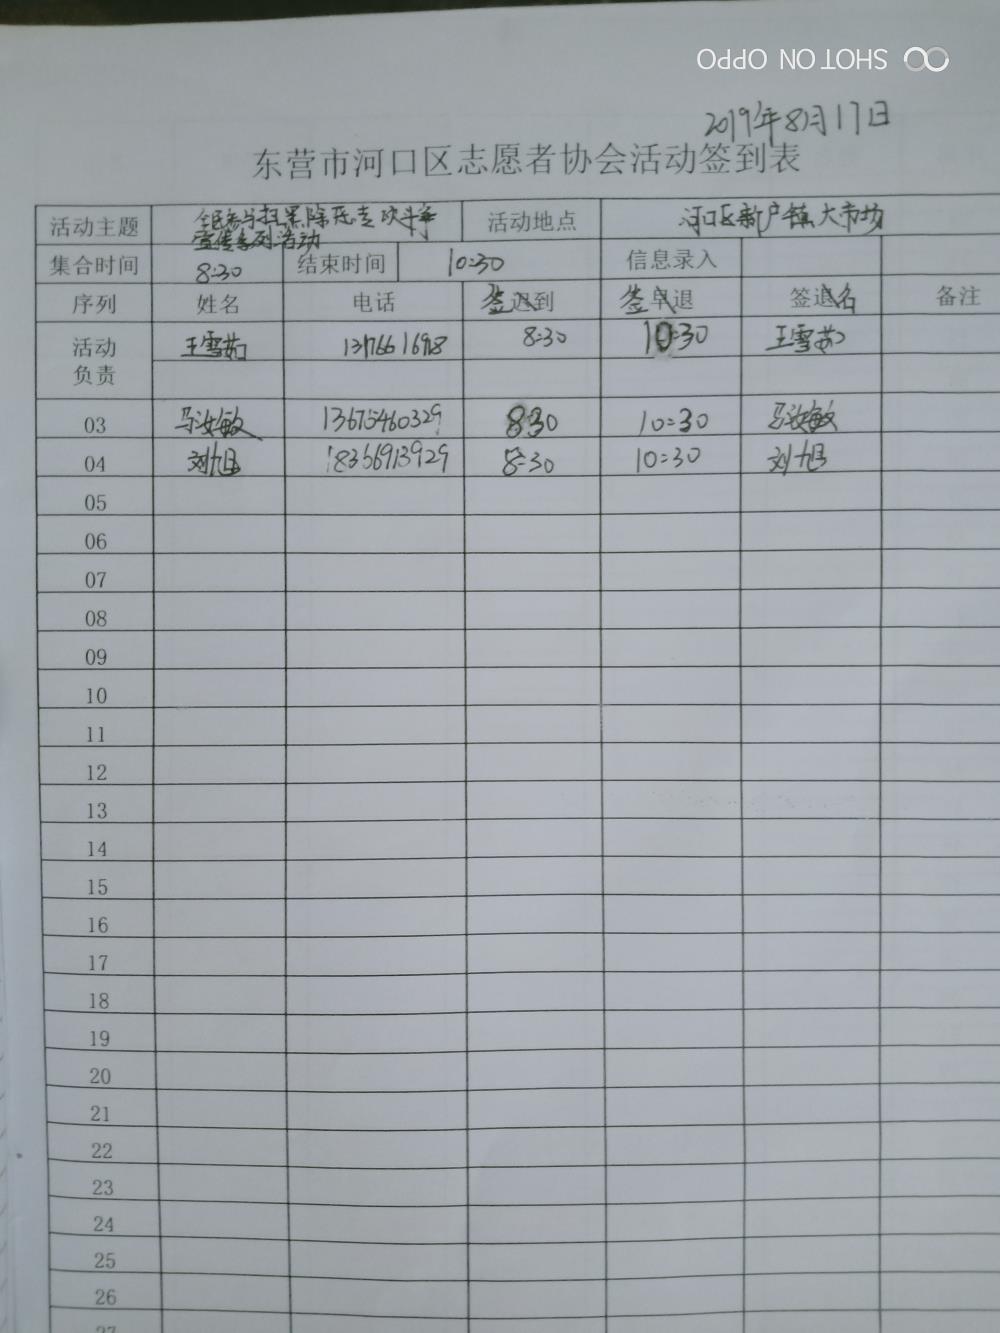 SHOT ON OPPO
2019年8月17日
东营市河口区志愿者协会活动签到表
活动主题 全民参与扫黑除恶专项斗争 活动地点 河口区新户镇大市场
宣传系列活动
集合时间 8:30 结束时间 10:30 信息录入
序列 姓名 电话 签到 签退 签名 备注
活动 王雪茹 8:30 10:30 王雪茹
负责
03 马汝敏 13675460329 8:30 10:30 马汝敏
04 刘旭 18356913929 8:30 10:30 刘旭
05
06
07
08
09
10
11
12
13
14
15
16
17
18
19
20
21
22
23
24
25
26
27